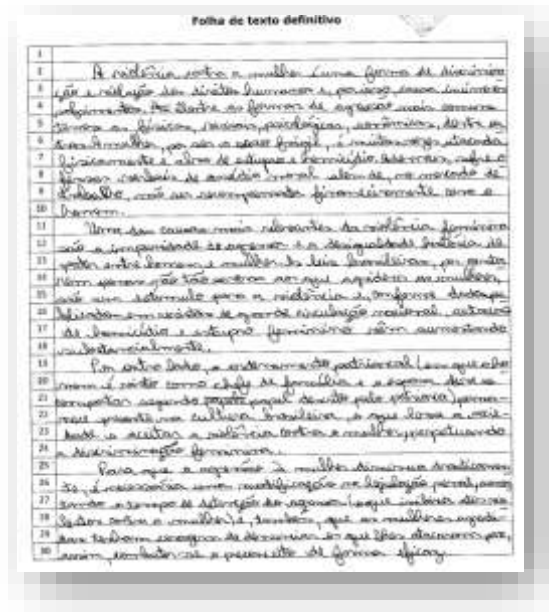 Folha de texto definitivo
1
2 A violência contra a mulher é uma forma de discrimina
3 ção e violação dos direitos humanos e, por isso, causa inúmeros
4 sofrimentos. Dentre as formas de agressão mais comuns
5 temos as físicas, sexuais, psicológicas, econômicas, dentre ou
6 tras. A mulher, por ser o sexo frágil, é muitas vezes atacada
7 fisicamente e alvo de estupro e homicídio. Ademais, sofre o
8 verbais de assédio moral além de, no mercado de
9 trabalho, não ser recompensada financeiramente como o
10 homem.
11 Uma das causas mais relevantes da violência feminina
12 são a impunidade do agressor e a desigualdade histórica de
13 poder entre homens e mulheres. As leis brasileiras, por
14 penas tão aos que agridem as mulheres,
15 são um estímulo para a violência e, conforme dados pu
16 blicados em revistas de grande circulação nacional, as taxas
17 de homicídio e estupro feminino vêm aumentando
18 substancialmente.
19 Por outro lado, o ordenamento patriarcal (em que o ho
20 mem é visto como chefe de família e a esposa deve se
21 comportar segundo papel descrito pelo patriarca) perma
22 nece presente na cultura brasileira, o que leva a socie
23 dade a aceitar a violência contra a mulher, perpetuando
24 a discriminação feminina.
25 Para que a agressão à mulher diminua drasticamen
26 te, é necessária uma modificação na legislação penal, aumen
27 tando o tempo de detenção do agressor (o que inibiria
28 contra a mulher) e, também, que as mulheres agredi
29 das tenham coragem de denunciar os que lhes atacaram para,
30 assim, combater-se o preconceito de forma eficaz.